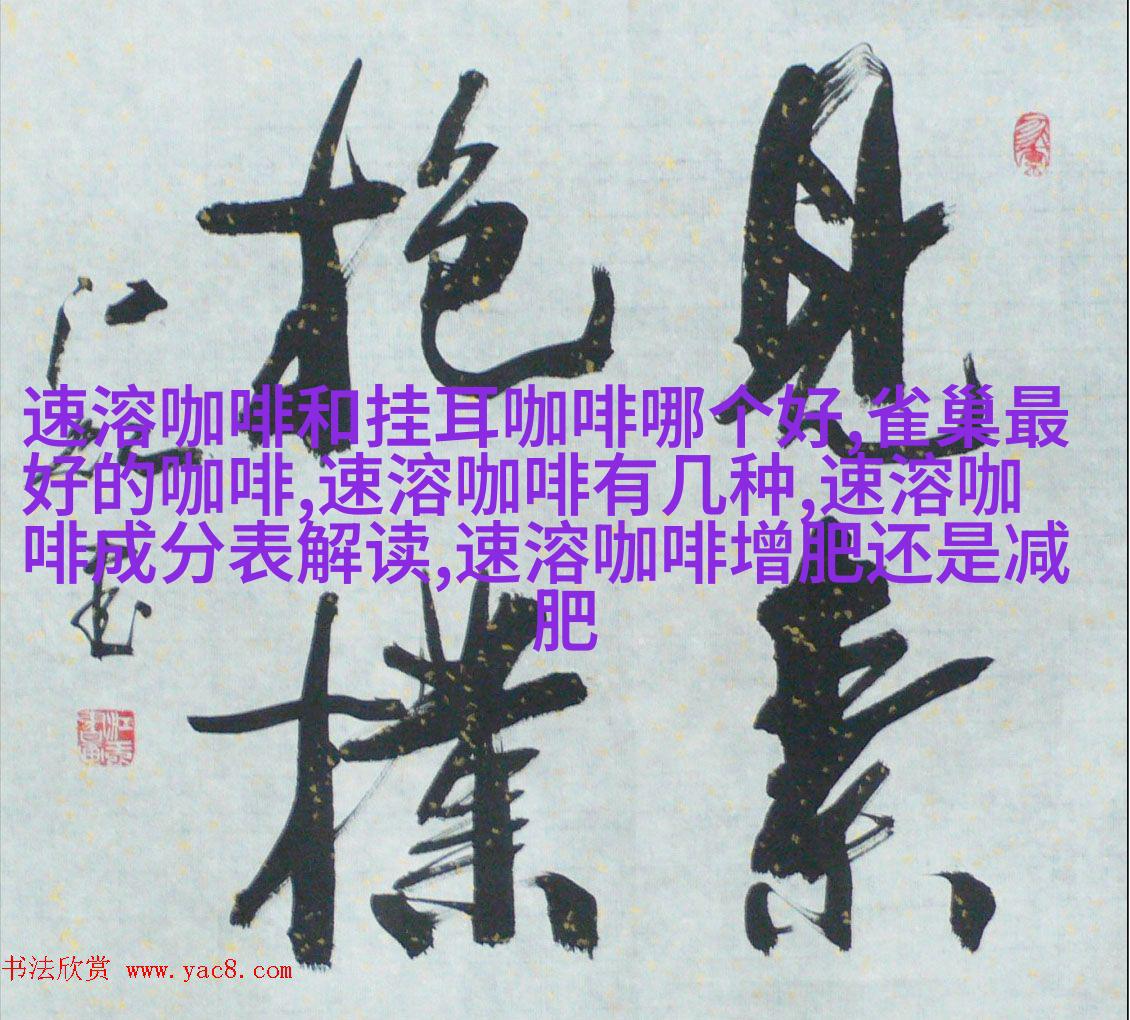 見素
抱樸
速溶咖啡和挂耳咖啡哪个好,雀巢最
好的咖啡,速溶咖啡有几种,速溶咖
啡成分表解读,速溶咖啡增肥还是减
肥
书法欣赏 www.yac8.com